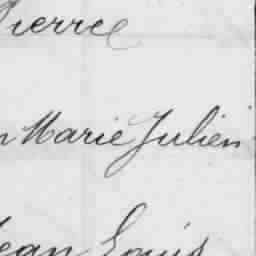 Pierre
n Marie Julien
Jean Louis